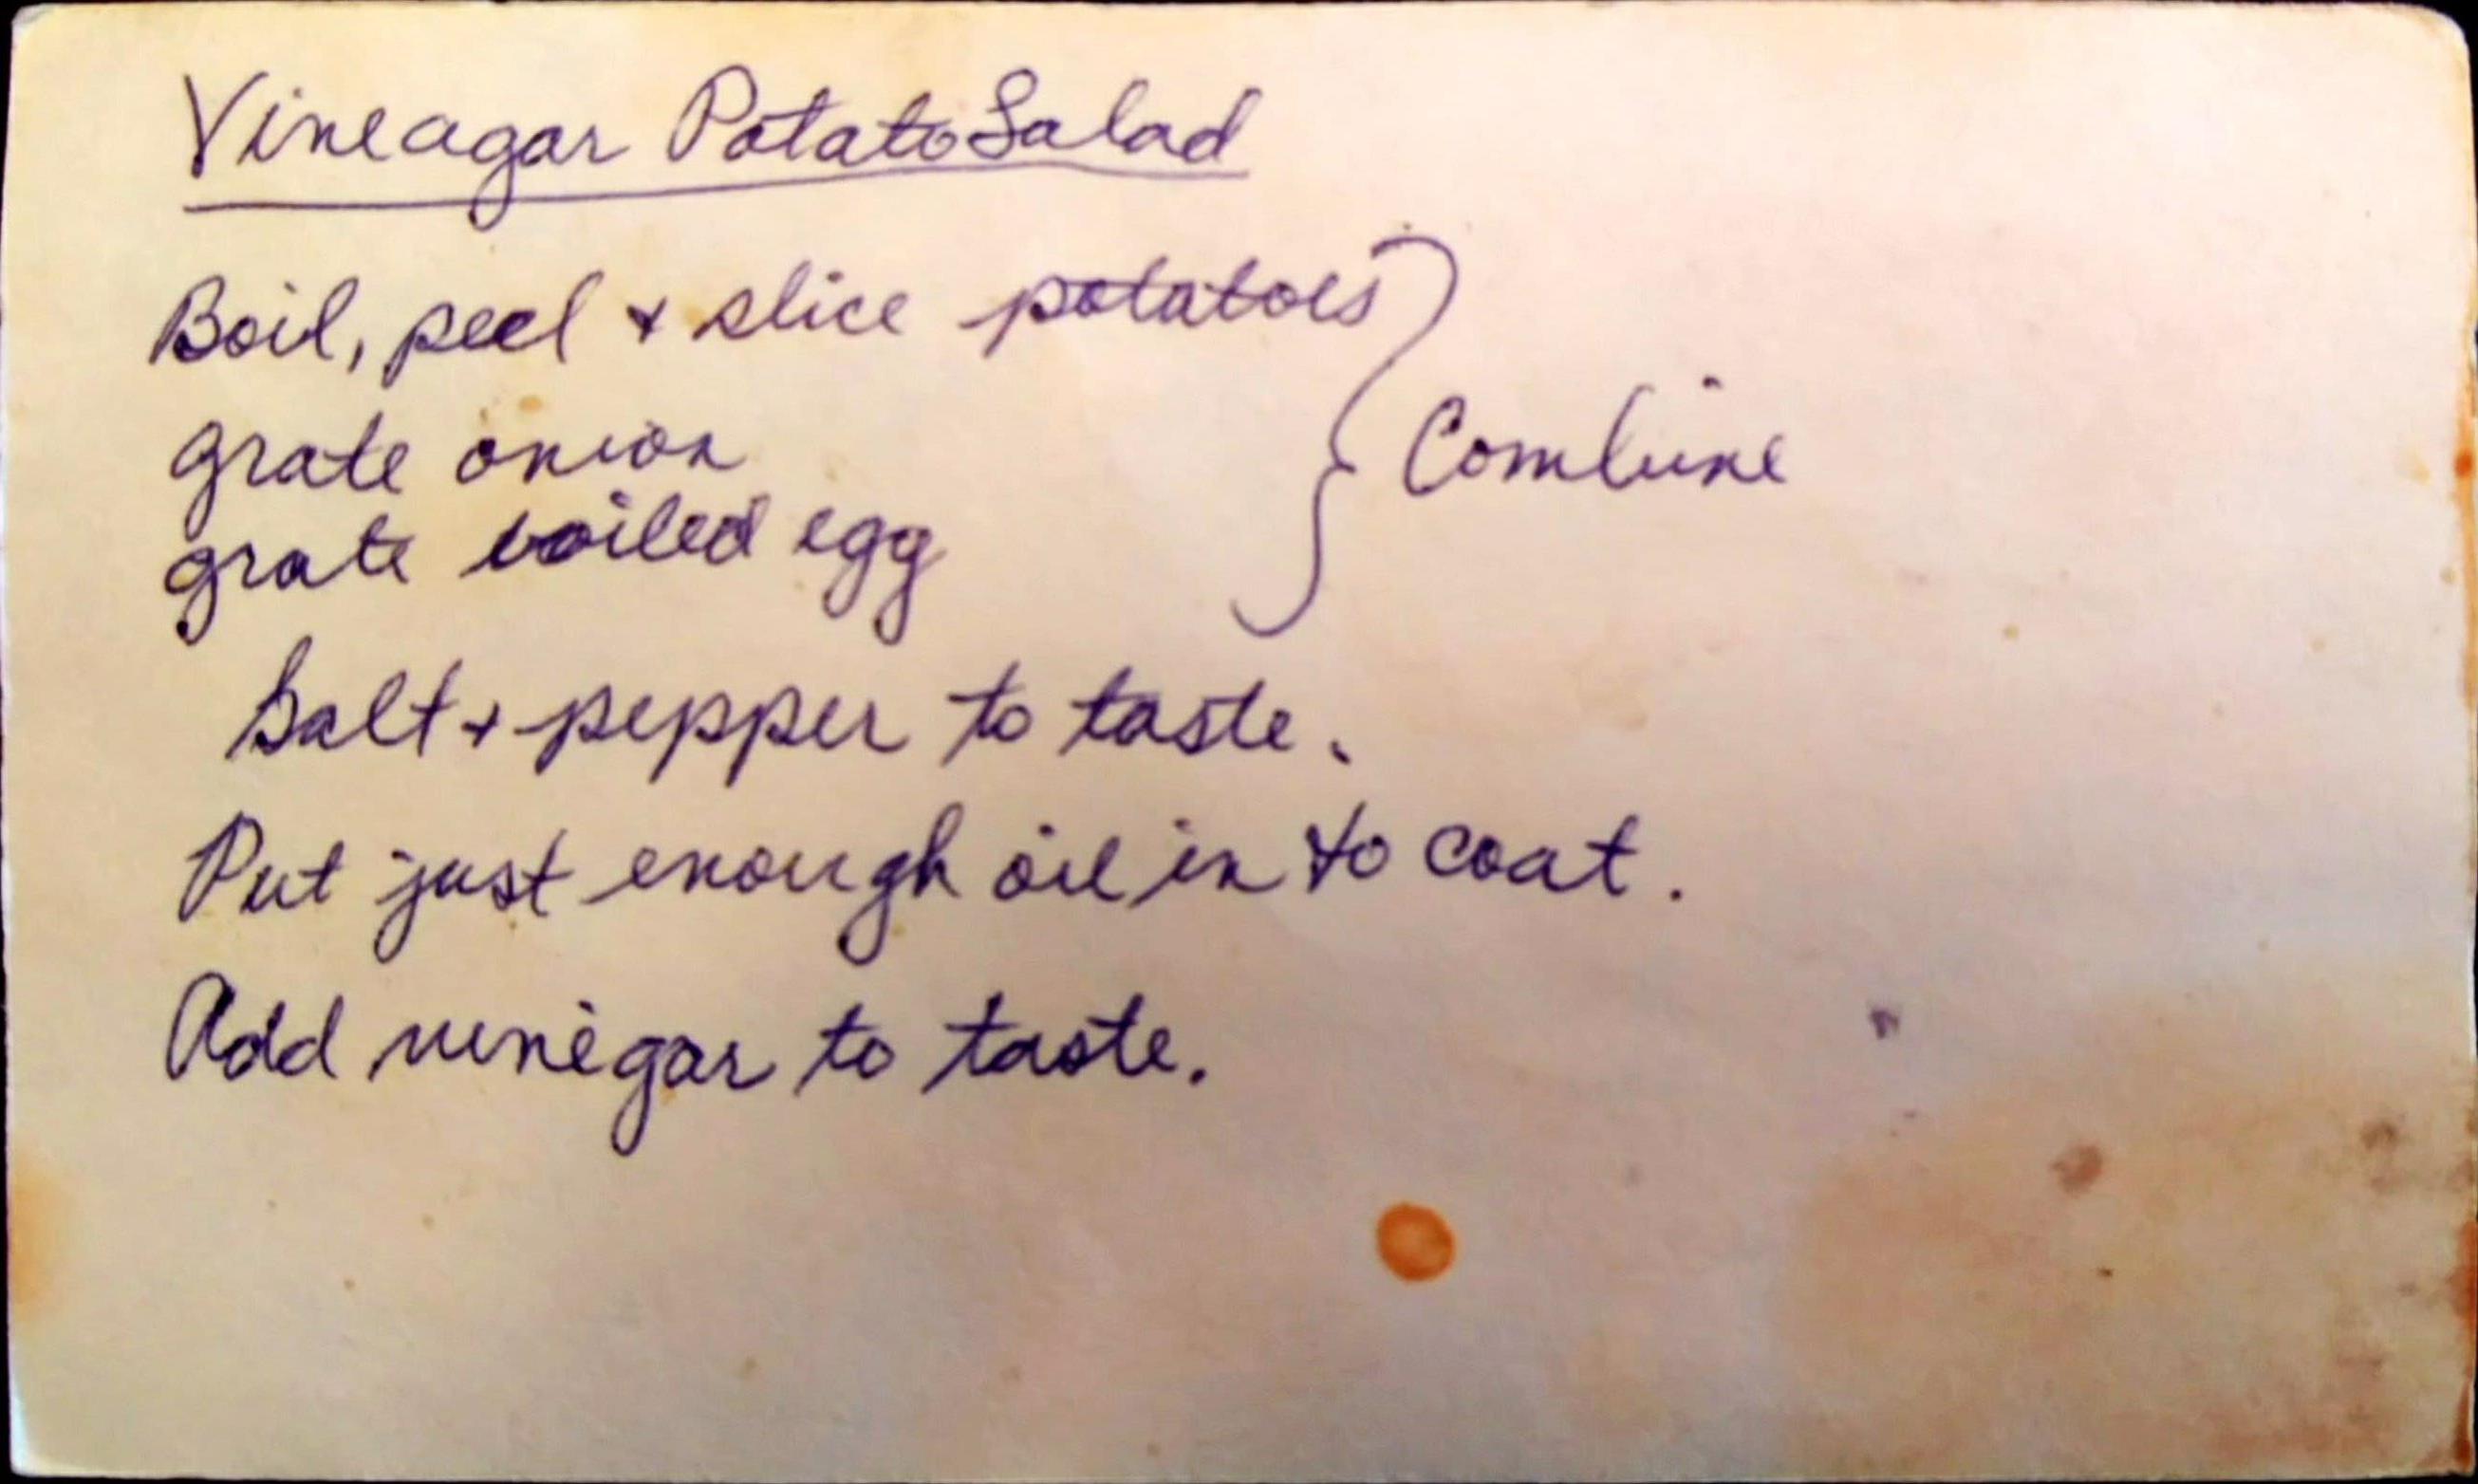 Vineagar Potato Salad
Boil, peel & slice potatoes
grate onion
Combine
grate boiled egg
Salt + pepper to taste.
Put just enough oil in to coat.
Add vinegar to taste.